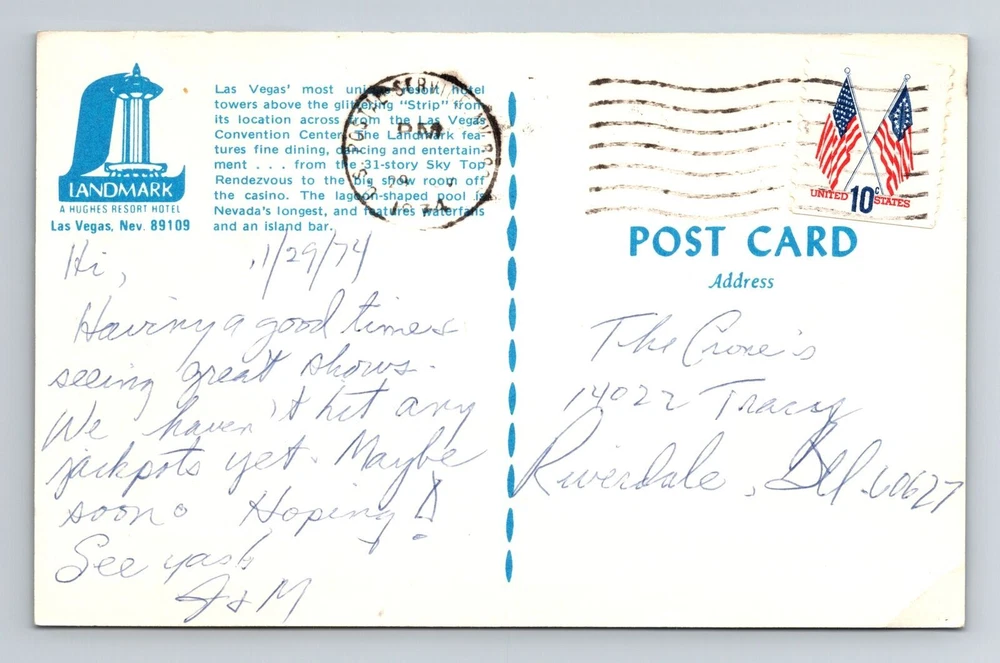 LANDMARK
A HUGHES RESORT HOTEL
Las Vegas, Nev. 89109
Las Vegas' most unique resort hotel
towers above the glittering "Strip" from
its location across from the Las Vegas
Convention Center. The Landmark fea-
tures fine dining, dancing and entertain-
ment . . . from the 31-story Sky Top
Rendezvous to the big show room off
the casino. The lagoon-shaped pool is
Nevada's longest, and features waterfalls
and an island bar.
UNITED 10c STATES
POST CARD
Address
Hi, 1/29/74
Having a good time &
seeing great shows.
We haven't hit any
jackpots yet. Maybe
soon. Hoping!!
See ya
J & M
The Crone's
14022 Tracy
Riverdale, Ill. 60627